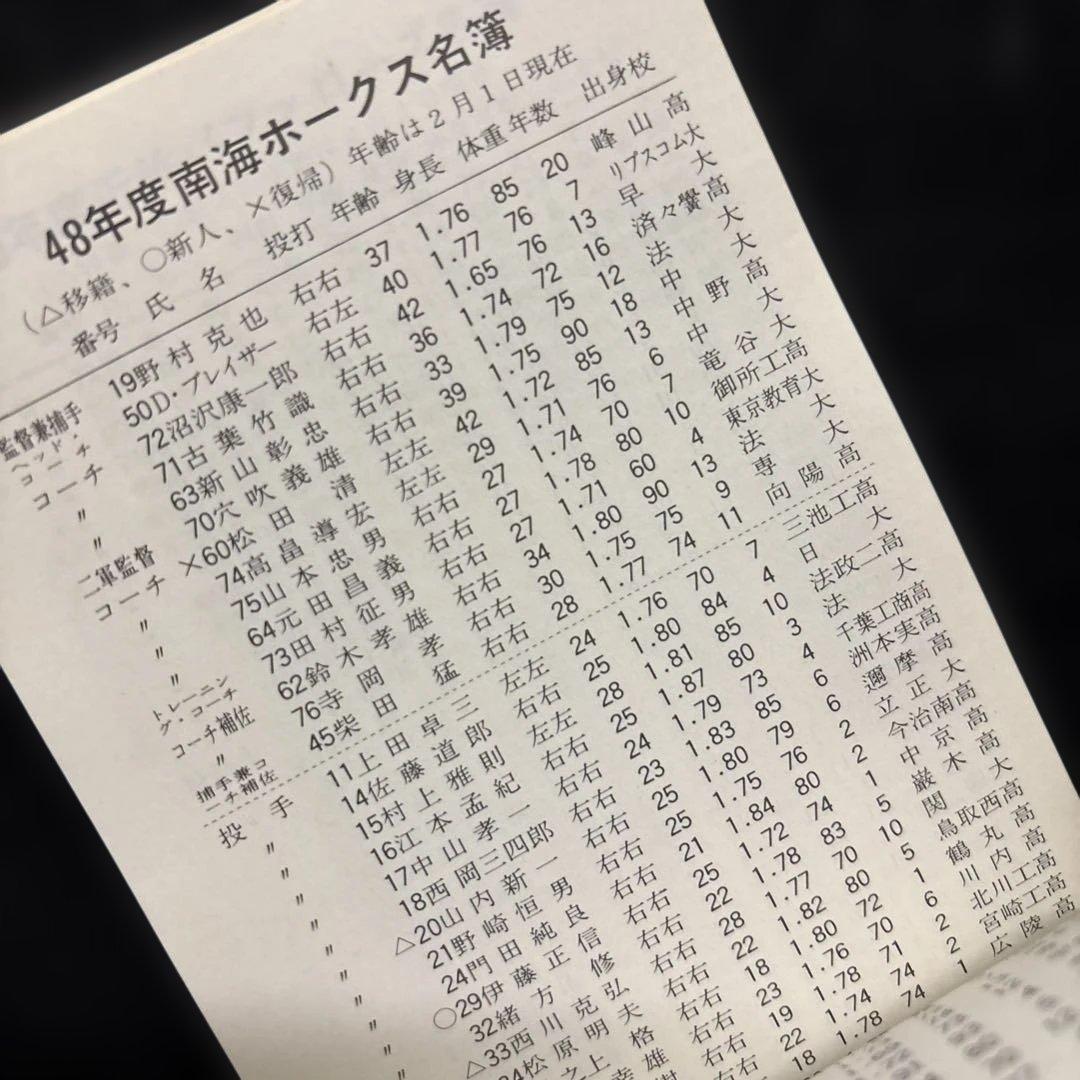 48年度南海ホークス名簿
（△移籍、○新人、×復帰）年齢は2月1日現在
番号 氏名 投打 年齢 身長 体重 年数 出身校
監督兼捕手 19野村克也 右右 37 1.76 85 20 峰山高
ヘッド・コーチ 50D・ブレイザー 右左 40 1.77 76 7 リプスコム大
コーチ 72沼沢康一郎 右右 42 1.65 76 13 早大
〃 71古葉竹識 右右 36 1.74 72 16 済々黌高
〃 63新山彰忠 右右 33 1.79 75 12 法大
二軍監督 70穴吹義雄 右右 39 1.75 90 18 中大
コーチ ×60松田清 左左 42 1.72 85 13 中野高
〃 74高畠導宏 左左 29 1.71 76 6 中大
〃 75山本忠男 右右 27 1.74 70 7 竜谷大
〃 64元田昌義 右右 27 1.78 80 10 御所工高
トレーニング・コーチ 73田村征男 右右 27 1.71 60 4 東京教育大
コーチ補佐 62鈴木孝雄 右右 34 1.80 90 13 法大
〃 76寺岡孝 右右 30 1.75 75 9 専大
捕手兼コーチ補佐 45柴田猛 右右 28 1.77 74 11 向陽高
投手 11上田卓三 左左 24 1.76 70 7 三池工高
〃 14佐藤道郎 右右 25 1.80 84 4 日大
〃 15村上雅則 左左 28 1.81 85 10 法政二高
〃 16江本孟紀 右右 25 1.87 80 3 法大
〃 17中山孝一 右右 24 1.79 73 4 千葉工商高
〃 18西岡三四郎 右右 23 1.83 85 6 洲本実高
〃 △20山内新一 右右 25 1.80 79 6 邇摩高
〃 21野崎恒男 右右 21 1.75 76 2 立正大
〃 24門田純良 右右 25 1.84 80 2 今治南高
〃 ○29伊藤正信 右右 22 1.72 74 1 中京高
32緒方修 右右 28 1.78 83 5 巌木高
△33西川克弘 右右 22 1.77 70 10 関大
松原明夫 右右 18 1.82 80 5 鳥取西高
23 1.80 72 1 鶴丸高
19 1.76 70 6 川内高
22 1.78 71 2 北川工高
18 1.74 74 2 宮崎工高
1.78 74 1 広陵高